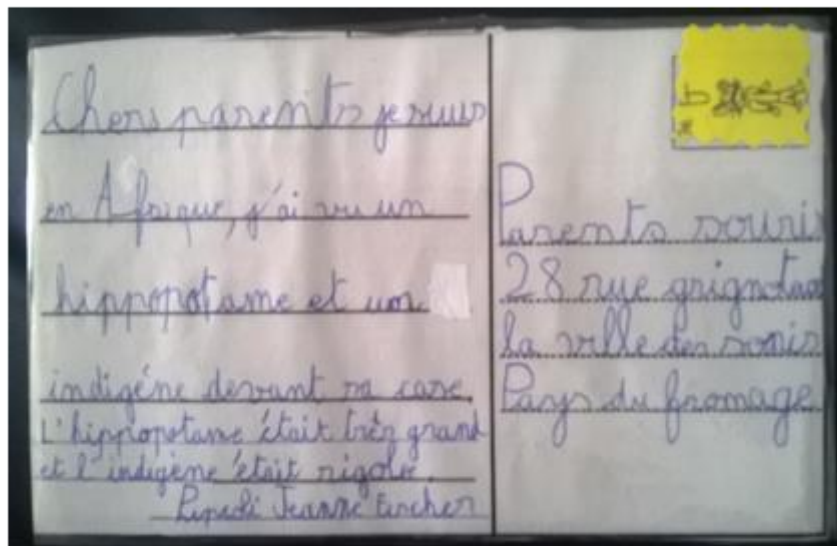 Chers parents je suis
en Afrique, j'ai vu un
hippopotame et un
indigéne devant sa case.
L'hippopotame était très grand
et l'indigène était
Jeanne
Parents souris
28 rue
la ville des souris
Pays du fromage